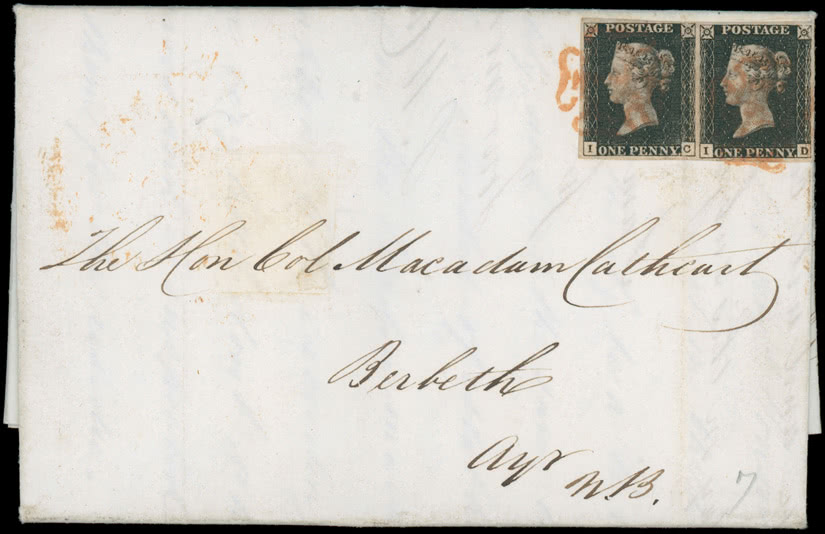 POSTAGE POSTAGE
I C I D
ONE PENNY ONE PENNY
The Hon Col Macadam Cathcart
Berbeth
Ayr
N.B.
7